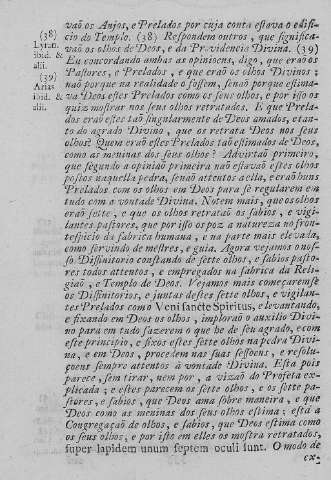 vaõ os Anjos, e Prelados por cuja conta estava o edifi-
cio do Templo. (38) Respondem outros, que significa-
vaõ os olhos de Deos, e da Providencia Divina. (39)
Eu concordando ambas as opinioens, digo, que eraõ os
Pastores, e Prelados, e que eraõ os olhos Divinos;
naõ porque na realidade o fossem, senaõ porque estima-
va Deos estes Prelados como os seus olhos, e por isso os
quiz mostrar nos seus olhos retratados. E que Prela-
dos eraõ estes taõ singularmente de Deos amados, e tan-
to do agrado Divino, que os retrata Deos nos seus
olhos? Quem eraõ estes Prelados taõ estimados de Deos,
como as meninas dos seus olhos? Advirtaõ primeiro,
que segundo a opiniaõ primeira naõ estavaõ estes olhos
postos naquella pedra, senaõ attentos a ella, e eraõ huns
Prelados com os olhos em Deos para se regularem em
tudo com a vontade Divina. Notem mais, que os olhos
eraõ sette, e que os olhos retrataõ os sabios, e vigi-
lantes pastores, que por isso os poz a natureza no fron-
tespicio da fabrica humana, e na parte mais elevada,
como servindo de mestres, e guia. Agora vejamos o nos-
so Diffinitorio constando de sette olhos, e sabios pasto-
res todos attentos, e empregados na fabrica da Reli-
giaõ, e Templo de Deos. Vejamos mais começarem se
os Diffinitorios, e juntas destes sette olhos, e vigilan-
tes Prelados com o Veni sancte Spiritus, e levantando,
e fixando em Deos os olhos, imploraõ o auxilio Divi-
no para em tudo fazerem o que he de seu agrado, e com
este principio, e fixos estes sette olhos na pedra Divi-
na, e em Deos, procedem nas suas sessoens, e resolu-
çoens sempre attentos à vontade Divina. Esta pois
parece, sem tirar, nem por, a vizaõ do Profeta ex-
plicada; e estes parecem os sette olhos, e os sette pa-
stores, e sabios, que Deos ama sobre maneira, e que
Deos como as meninas dos seus olhos estima: está a
Congregaçaõ de olhos, e sabios, que Deos estima como
os seus olhos, e por isto em elles os mostra retratados,
super lapidem unum septem oculi sunt. O modo de
ex-
(38)
Lyran.
ibid. &
alii.
(39)
Arias
ibid. &
alii.